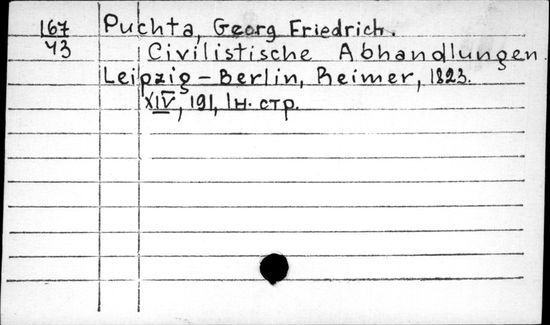 167 Puchta, Georg Friedrich.
43 Civilistische Abhandlungen.
Leipzig – Berlin, Reimer, 1823.
XIV, 191, 1 н. стр.